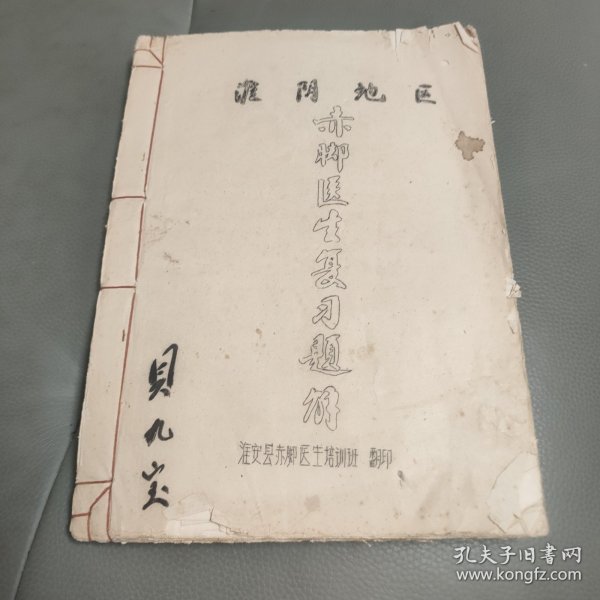 淮阴地区
赤脚医生复习题解
淮安县赤脚医生培训班 翻印
贝九宝
孔夫子旧书网
www.kongfz.com